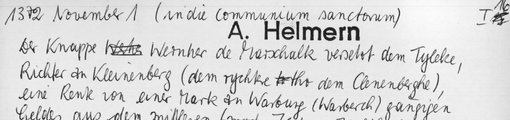 1372 November 1 (in die communium sanctorum) I 16
A. Helmern
Der Knappe Wernher de Marschalk versetzt dem Tyleke,
Richter in Kleinenberg (dem rychte tho dem Clenenberghe),
eine Rente von einer Mark in Warburg (Warberch) gängigen
Geldes aus dem